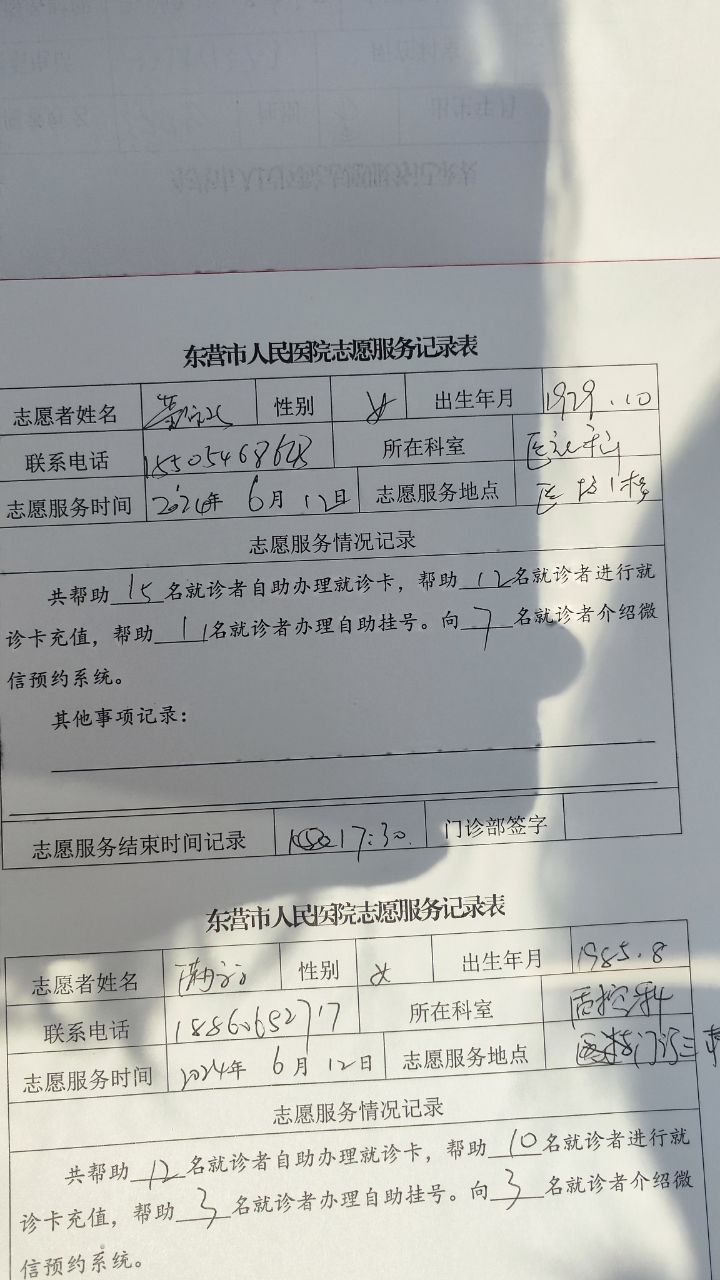 东营市人民医院志愿服务记录表
志愿者姓名 性别 女 出生年月 1979.10
联系电话 所在科室
志愿服务时间 2024年 6月 12日 志愿服务地点 医技1楼
志愿服务情况记录
共帮助15名就诊者自助办理就诊卡，帮助12名就诊者进行就
诊卡充值，帮助11名就诊者办理自助挂号。向7名就诊者介绍微
信预约系统。
其他事项记录：
志愿服务结束时间记录 17:30 门诊部签字
东营市人民医院志愿服务记录表
志愿者姓名 性别 女 出生年月 1985.8
联系电话 18860652717 所在科室 质控科
志愿服务时间 2024年 6月 12日 志愿服务地点
志愿服务情况记录
共帮助12名就诊者自助办理就诊卡，帮助10名就诊者进行就
诊卡充值，帮助3名就诊者办理自助挂号。向3名就诊者介绍微
信预约系统。